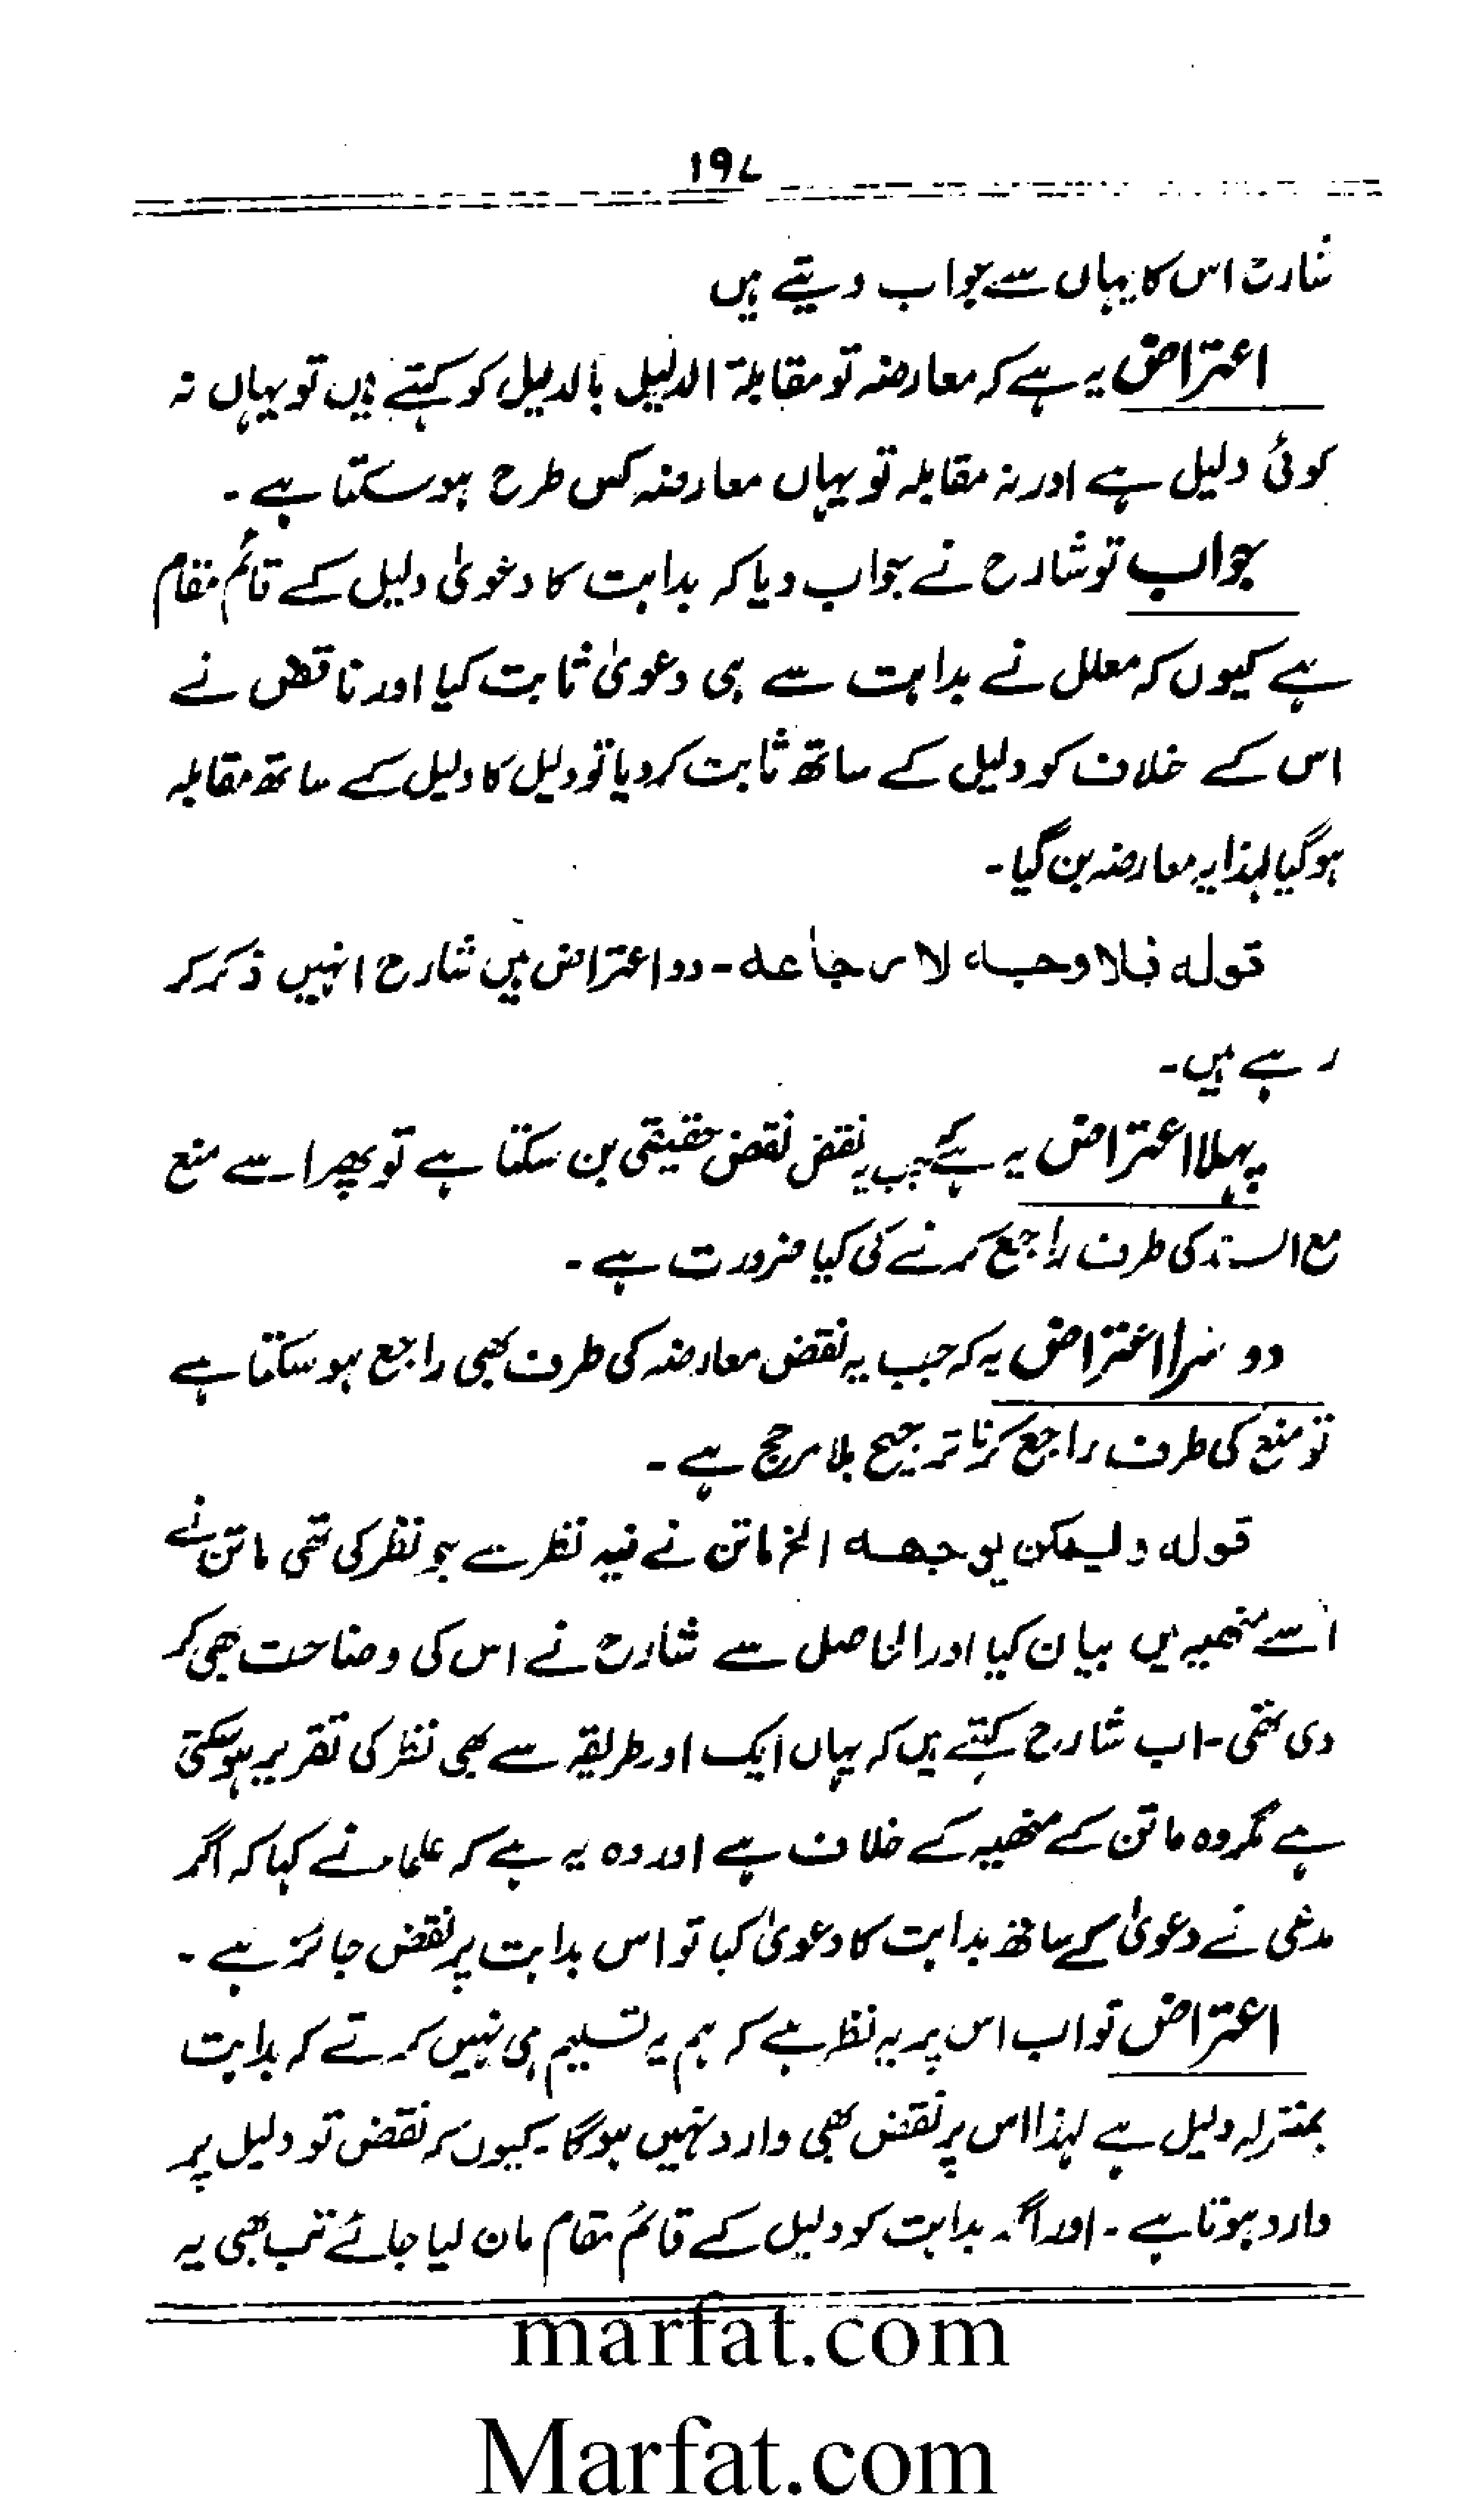 ۱۹۷
شارح اس کا یہاں سے جواب دیتے ہیں
اعتراض یہ ہے کہ معارضہ تو مقابلۃ الدلیل بالدلیل کو کہتے ہیں تو یہاں نہ
کوئی دلیل ہے اور نہ مقابلہ تو یہاں معارضہ کس طرح ہو سکتا ہے۔
جواب تو شارح نے جواب دیا کہ بداہت کا دعویٰ دلیل کے قائم مقام
ہے کیوں کہ معلل نے بداہت سے ہی دعویٰ ثابت کیا اور ناقض نے
اس کے خلاف کو دلیل کے ساتھ ثابت کر دیا تو دلیل کا دلیل کے ساتھ مقابلہ
ہو گیا لہذا یہ معارضہ بن گیا۔
قولہ فلا وجہ لارجاعہ۔ دو اعتراض ہیں شارح انہیں ذکر کر
رہے ہیں۔
پہلا اعتراض یہ ہے کہ جب یہ نقض نقض حقیقی بن سکتا ہے تو پھر اسے منع
مع السند کی طرف راجع کرنے کی کیا ضرورت ہے۔
دوسرا اعتراض یہ کہ جب یہ نقض معارضہ کی طرف بھی راجع ہو سکتا ہے
تو منع کی طرف راجع کرنا ترجیح بلا مرجح ہے۔
قولہ ولیمکن یوجھہ الخ ماتن نے فیہ نظر سے جو نظر کی تھی ماتن نے
اسے منھیہ میں بیان کیا اور الحاصل سے شارح نے اس کی وضاحت بھی کر
دی تھی۔ اب شارح کہتے ہیں کہ یہاں ایک اور طریقہ سے بھی نظر کی تقریر ہو سکتی
ہے مگر وہ ماتن کے منھیہ کے خلاف ہے اور وہ یہ ہے کہ علماء نے کہا کہ اگر
مدعی نے دعویٰ کے ساتھ بداہت کا دعویٰ کیا تو اس بداہت پر نقض جائز ہے۔
اعتراض تو اب اس پر یہ نظر ہے کہ ہم یہ تسلیم ہی نہیں کرتے کہ بداہت
بمنزلہ دلیل ہے لہذا اس پر نقض بھی وارد نہیں ہوگا۔ کیوں کہ نقض تو دلیل پر
وارد ہوتا ہے۔ اور اگر بداہت کو دلیل کے قائم مقام مان لیا جائے تب بھی یہ
marfat.com
Marfat.com